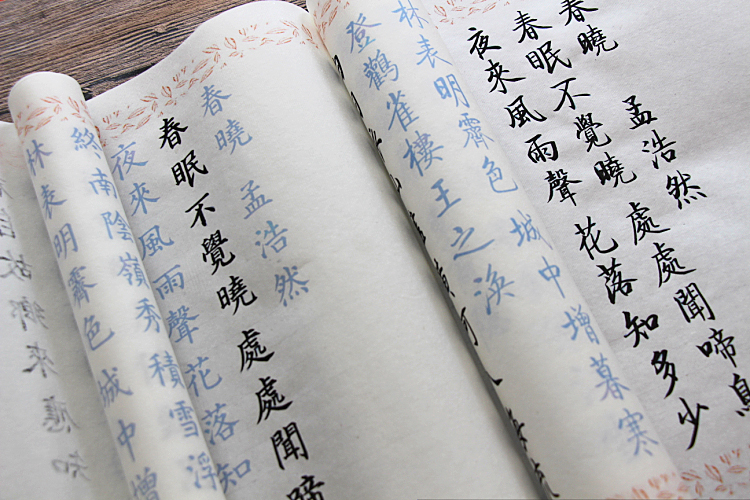 春曉 孟浩然
春眠不覺曉 處處聞啼
夜來風雨聲 花落知多少
林表明霽色 城中增暮寒
登鸛雀樓 王之渙
春曉 孟浩然
春眠不覺曉 處處聞啼
夜來風雨聲 花落知
終南陰嶺秀 積雪浮
林表明霽色 城中增
故鄉來 應知